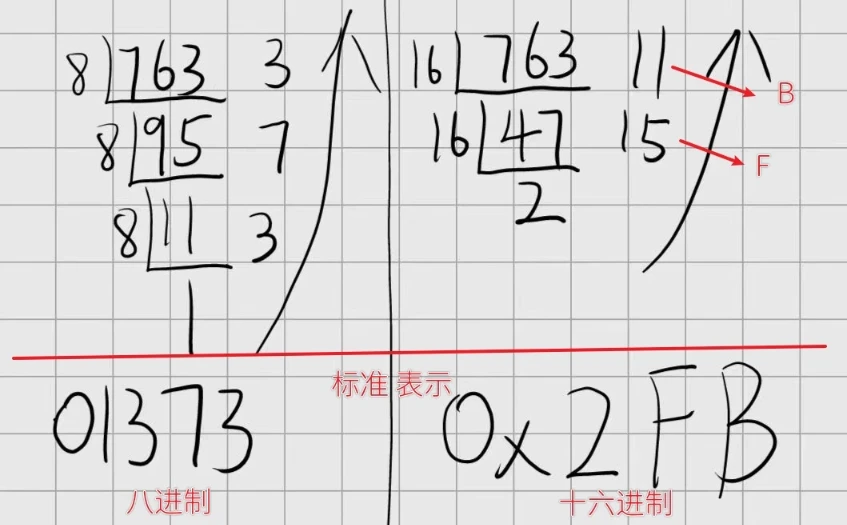 8 763 3
8 95 7
8 11 3
1
16 763 11 B
16 47 15 F
2
标准 表示
01373
八进制
0x2FB
十六进制